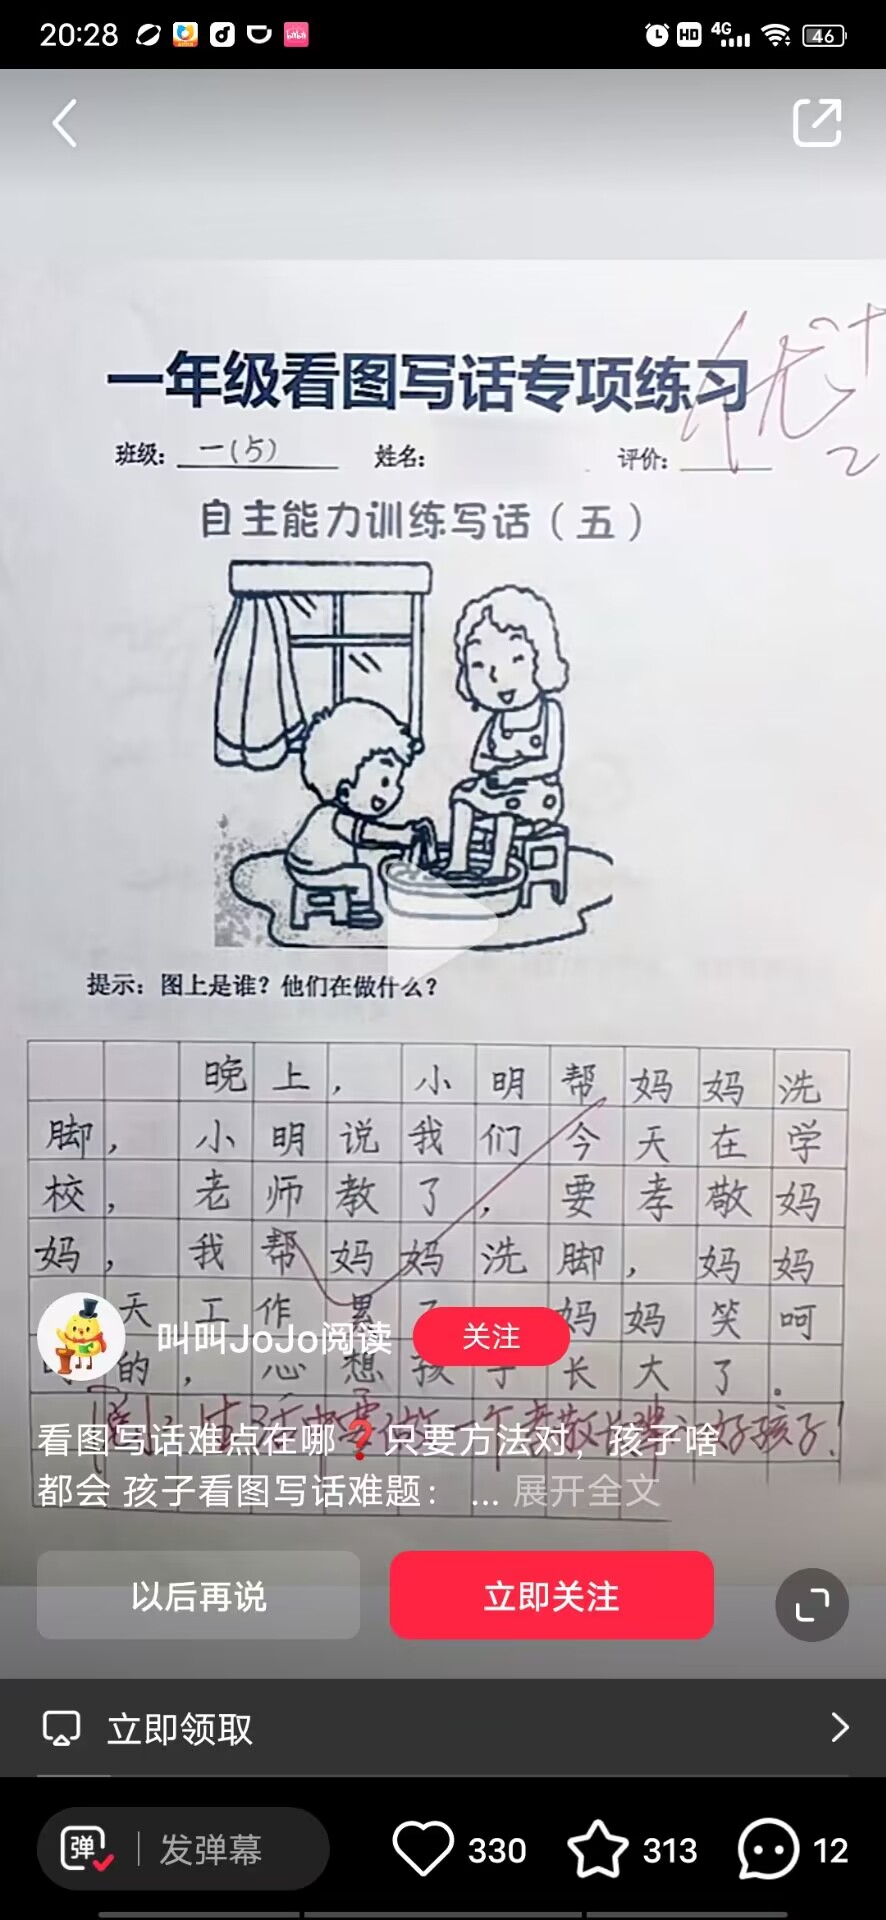 20:28
HD 4G 46
一年级看图写话专项练习
优+
2
班级: 一(5) 姓名: 评价:
自主能力训练写话（五）
提示：图上是谁？他们在做什么？
晚上，小明帮妈妈洗
脚，小明说我们今天在学
校，老师教了，要孝敬妈
妈，我帮妈妈洗脚，妈妈
天工作累了 妈妈笑呵
的，心想孩子长大了。
生活中要做一个孝敬长辈的好孩子！
叫叫JoJo阅读 关注
看图写话难点在哪❓只要方法对，孩子啥
都会 孩子看图写话难题： ... 展开全文
以后再说 立即关注
立即领取
弹 发弹幕 330 313 12